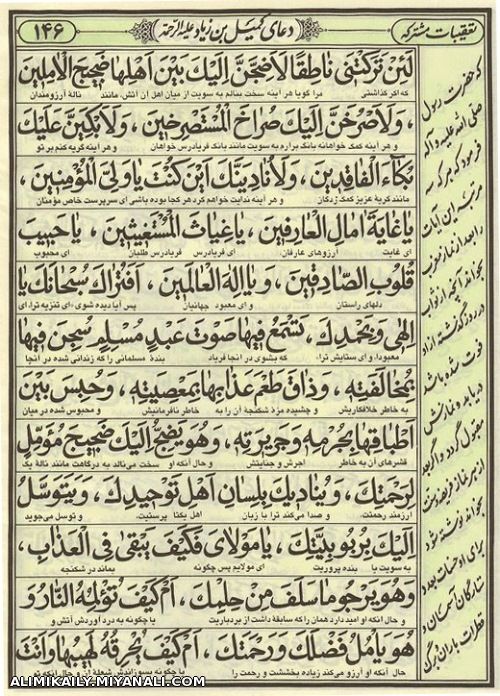 تعقیبات مشترکه
دعای کمیل بن زیاد علیه الرحمة
۱۴۶
لَئِنْ تَرَكْتَنِي نَاطِقًا لَأَضِجَّنَّ إِلَيْكَ بَيْنَ أَهْلِهَا ضَجِيجَ الْآمِلِينَ
که اگر گذاشتی مرا گویا هر آینه سخت بنالم به سویت از میان اهل آن آتش، مانند نالهٔ آرزومندان
، وَلَأَصْرُخَنَّ إِلَيْكَ صُرَاخَ الْمُسْتَصْرِخِينَ ، وَلَأَبْكِيَنَّ عَلَيْكَ
و هر آینه کمک خواهانه بانگ برآرم به سویت مانند بانگ فریادرس خواهان و هر آینه گریه کنم بر تو
بُكَاءَ الْفَاقِدِينَ ، وَلَأُنَادِيَنَّكَ أَيْنَ كُنْتَ يَا وَلِيَّ الْمُؤْمِنِينَ ،
مانند گریهٔ عزیز گم کردگان و هر آینه ندایت خواهم کرد هر کجا بوده باشی ای سرپرست خاص مؤمنان
يَا غَايَةَ آمَالِ الْعَارِفِينَ ، يَا غِيَاثَ الْمُسْتَغِيثِينَ ، يَا حَبِيبَ
ای غایت آرزوهای عارفان، ای فریادرس فریادرس طلبان ای محبوب
قُلُوبِ الصَّادِقِينَ ، وَيَا إِلٰهَ الْعَالَمِينَ ، أَفَتُرَاكَ سُبْحَانَكَ يَا
دلهای راستان و ای معبود جهانیان پس آیا دیده شوی، ای تنزیه ترا، ای
إِلٰهِي وَبِحَمْدِكَ ، تَسْمَعُ فِيهَا صَوْتَ عَبْدٍ مُسْلِمٍ سُجِنَ فِيهَا
معبودم، و ای ستایش ترا، که بشنوی در آنجا فریاد بندهٔ مسلمانی را که زندانی شده در آنجا
بِمُخَالَفَتِهِ ، وَذَاقَ طَعْمَ عَذَابِهَا بِمَعْصِيَتِهِ ، وَحُبِسَ بَيْنَ
به خاطر خلافکاریش و چشیده مزهٔ شکنجهٔ آن را به خاطر نافرمانیش و محبوس شده در میان
أَطْبَاقِهَا بِجُرْمِهِ وَجَرِيرَتِهِ ، وَهُوَ يَضِجُّ إِلَيْكَ ضَجِيجَ مُؤَمِّلٍ
قشرهای آن به خاطر جرمش و جنایتش و حال آنکه او سخت می‌نالد به درگاهت مانند نالهٔ یک
لِرَحْمَتِكَ ، وَيُنَادِيكَ بِلِسَانِ أَهْلِ تَوْحِيدِكَ ، وَيَتَوَسَّلُ
آرزمند رحمتت، و صدا می‌کند ترا با زبان اهل یکتا پرستیت و توسل می‌جوید
إِلَيْكَ بِرُبُوبِيَّتِكَ ، يَا مَوْلَايَ فَكَيْفَ يَبْقَىٰ فِي الْعَذَابِ ،
به سویت با بنده پروریت ای مولایم پس چگونه بماند در شکنجه
وَهُوَ يَرْجُو مَا سَلَفَ مِنْ حِلْمِكَ ، أَمْ كَيْفَ تُؤْلِمُهُ النَّارُ وَ
و حال آنکه او امید دارد همان را که سابقه داشت از بردباریت یا چگونه به درد آوردش آتش و
هُوَ يَأْمُلُ فَضْلَكَ وَرَحْمَتَكَ ، أَمْ كَيْفَ يُحْرِقُهُ لَهِيبُهَا وَأَنْتَ
حال آنکه او آرزو می‌کند زیاده بخششت و رحمت را یا چگونه بسوزاندش شعلهٔ آن و حال آنکه تو
که حضرت رسول
صلی الله علیه و آله
فرمود که هر که سه
مرتبه این آیات
را بعد از نماز
بخواند آنچه از ثواب
در روز گذشته از او
فوت شده باشد
دریابد و نمازش
مقبول گردد و اگر بعد
از هر نماز فریضه و سنت
بخواند نوشته شود
برای او حسنات بعدد
ستارگان آسمان و
قطرات باران و برگ
ALIMIKAILY.MIYANALI.COM